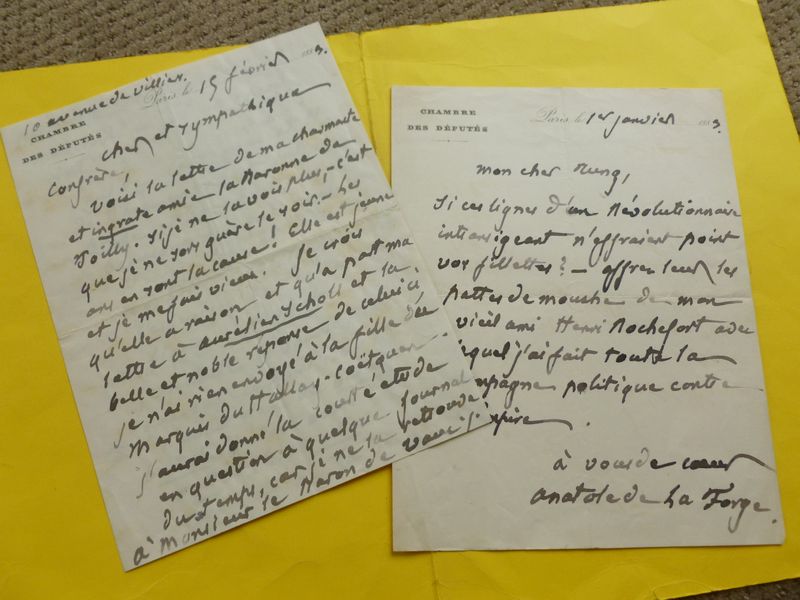 10 avenue de villiers.
CHAMBRE
DES DÉPUTÉS
Paris le 15 février 1883.
Cher et sympathique
Confrère,
Voici la lettre de ma charmante
et ingrate amie la Baronne de
Poilly. Si je ne la vois plus, - c'est
que je ne sors guère le soir. - Les
ans en sont la cause! Elle est jeune
et je me fais vieux. Je crois
qu'elle a raison et qu'à part ma
lettre à Aurélien Scholl et la
belle et noble réponse de celui-ci,
je n'ai rien envoyé à la fille du
Marquis du Hallay-Coëtquen.
J'aurai donné la courte étude
en question à quelque journal
du temps, car je ne la retrouve
à Monsieur le Baron de
CHAMBRE
DES DÉPUTÉS
Paris le 1er janvier 1883.
mon cher
Si ces lignes d'un Révolutionnaire
intransigeant n'effraient point
vos fillettes? - offrez leur les
pattes de mouche de mon
vieil ami Henri Rochefort avec
lequel j'ai fait toute la
mpagne politique contre
mpire.
à vous de cœur
Anatole de La Forge.